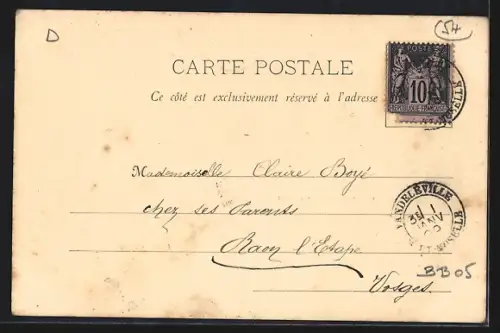 D
54
POSTES
10
REPUBLIQUE FRANÇAISE
CARTE POSTALE
Ce côté est exclusivement réservé à l'adresse
MOSELLE
Mademoiselle Claire Boyé
chez ses Parents
Raon l'Etape
Vosges.
VANDELEVILLE
1
JANV
MOSELLE
BB05